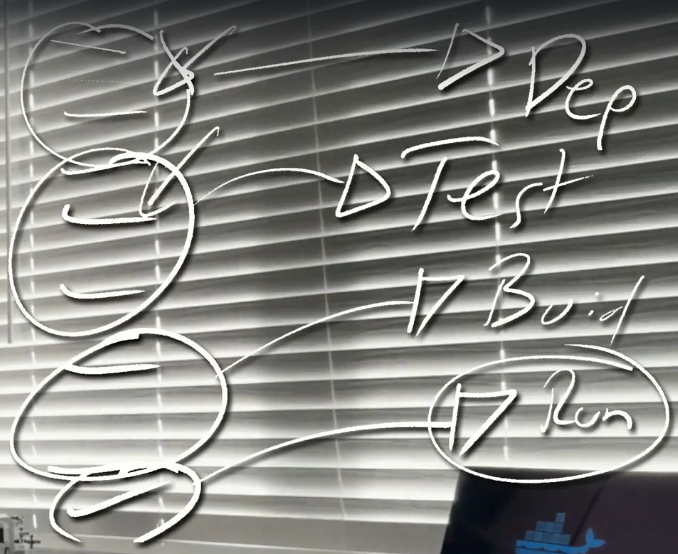 Dep
Test
Buid
Run